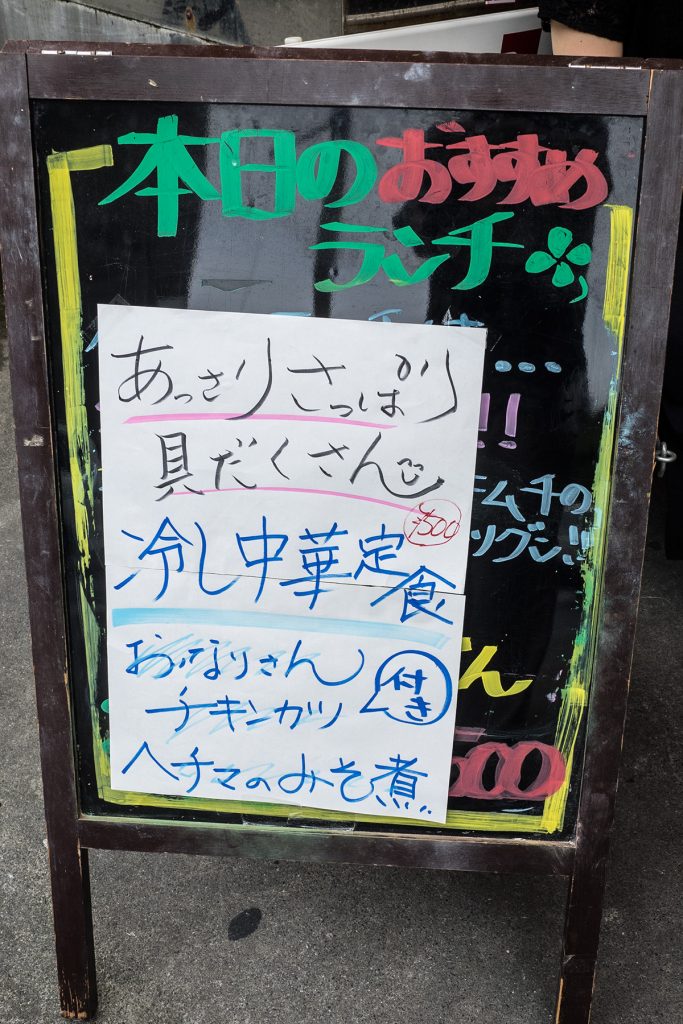 本日のおすすめ
ランチ
あっさりさっぱり
具だくさん
¥500
冷し中華定食
おいなりさん
チキンカツ
付き
ヘチマのみそ煮
...
!!
キムチの
ツグシ!!
ん
500